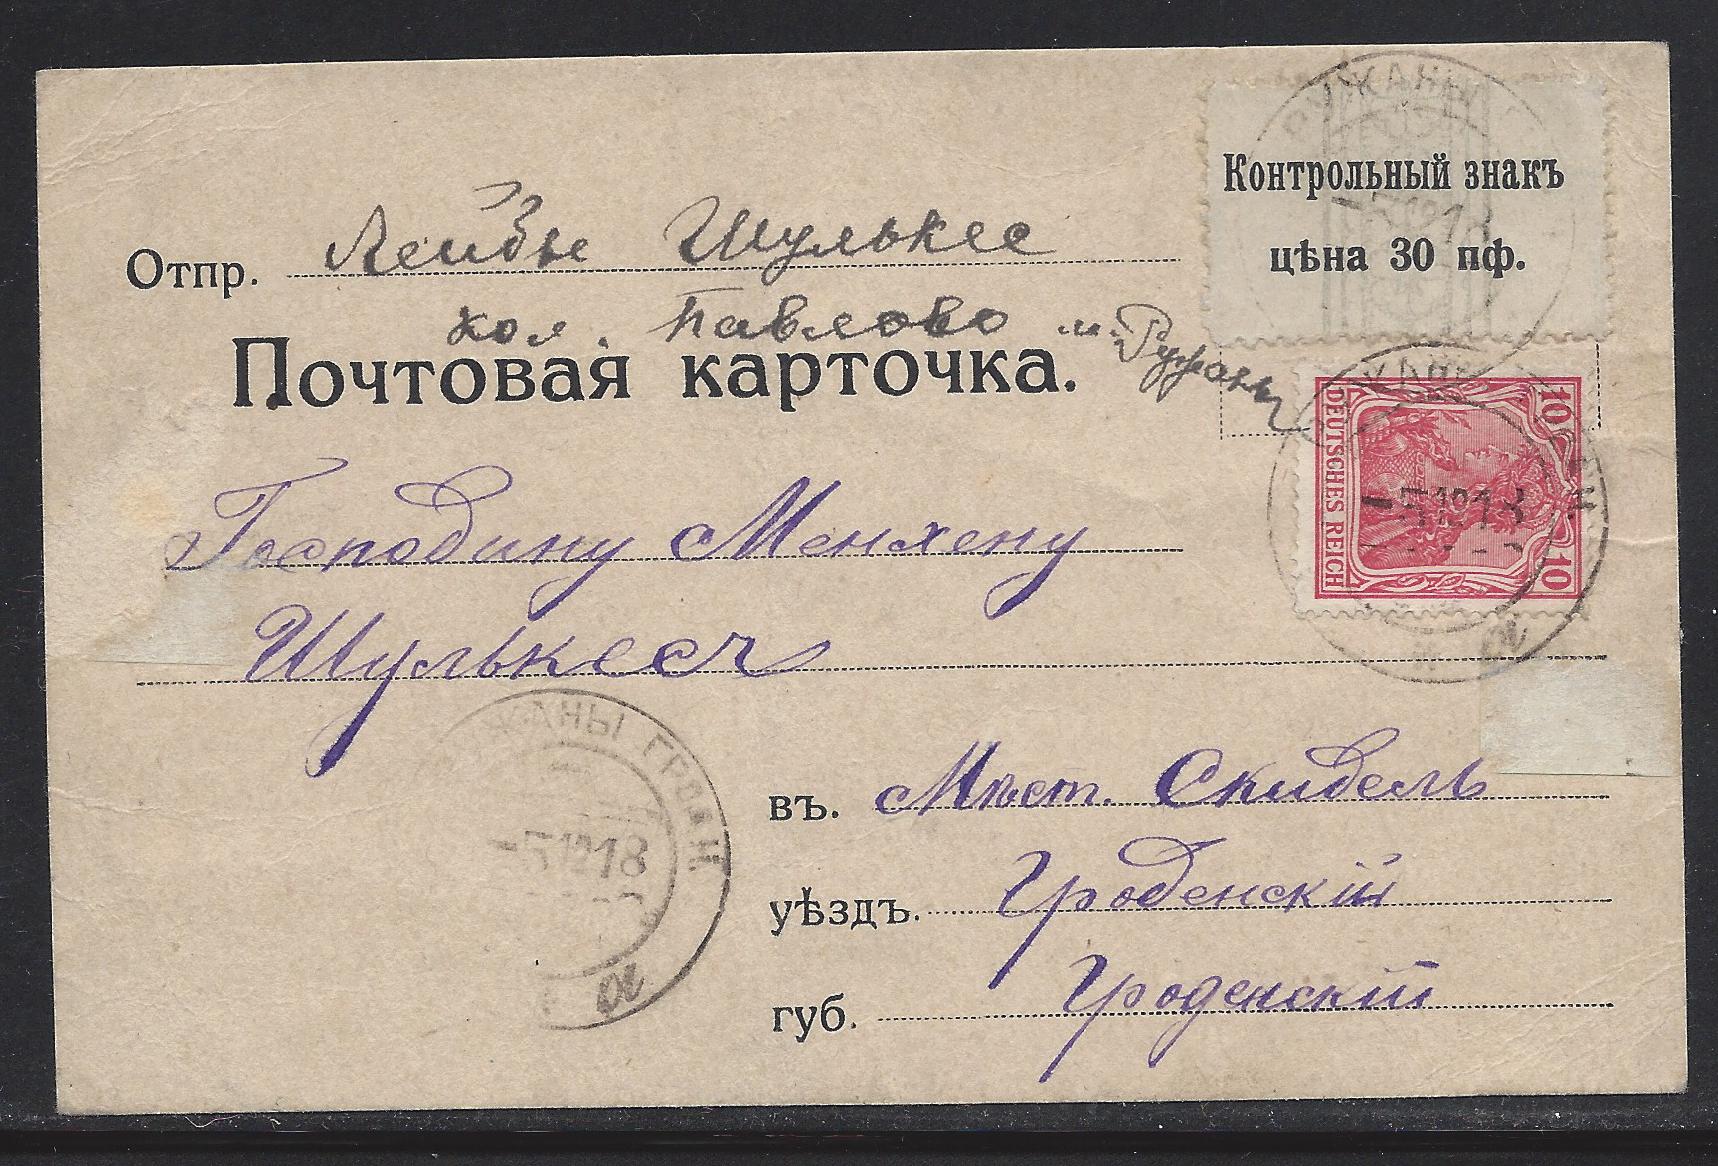 Контрольный знакъ
цѣна 30 пф.
Отпр. Лейбы Шулькес
кол. Павлово м. Ружаны
Почтовая карточка.
DEUTSCHES REICH
10 10
Господину Менхену
Шулькесъ
въ. Мѣст. Скидель
уѣздъ. Гроденскій
губ. Гроденскій
РУЖАНЫ
-5.12.18
РУЖАНЫ ГРОДН
-5.12.18
РУЖАНЫ ГРОДН
-5.12.18